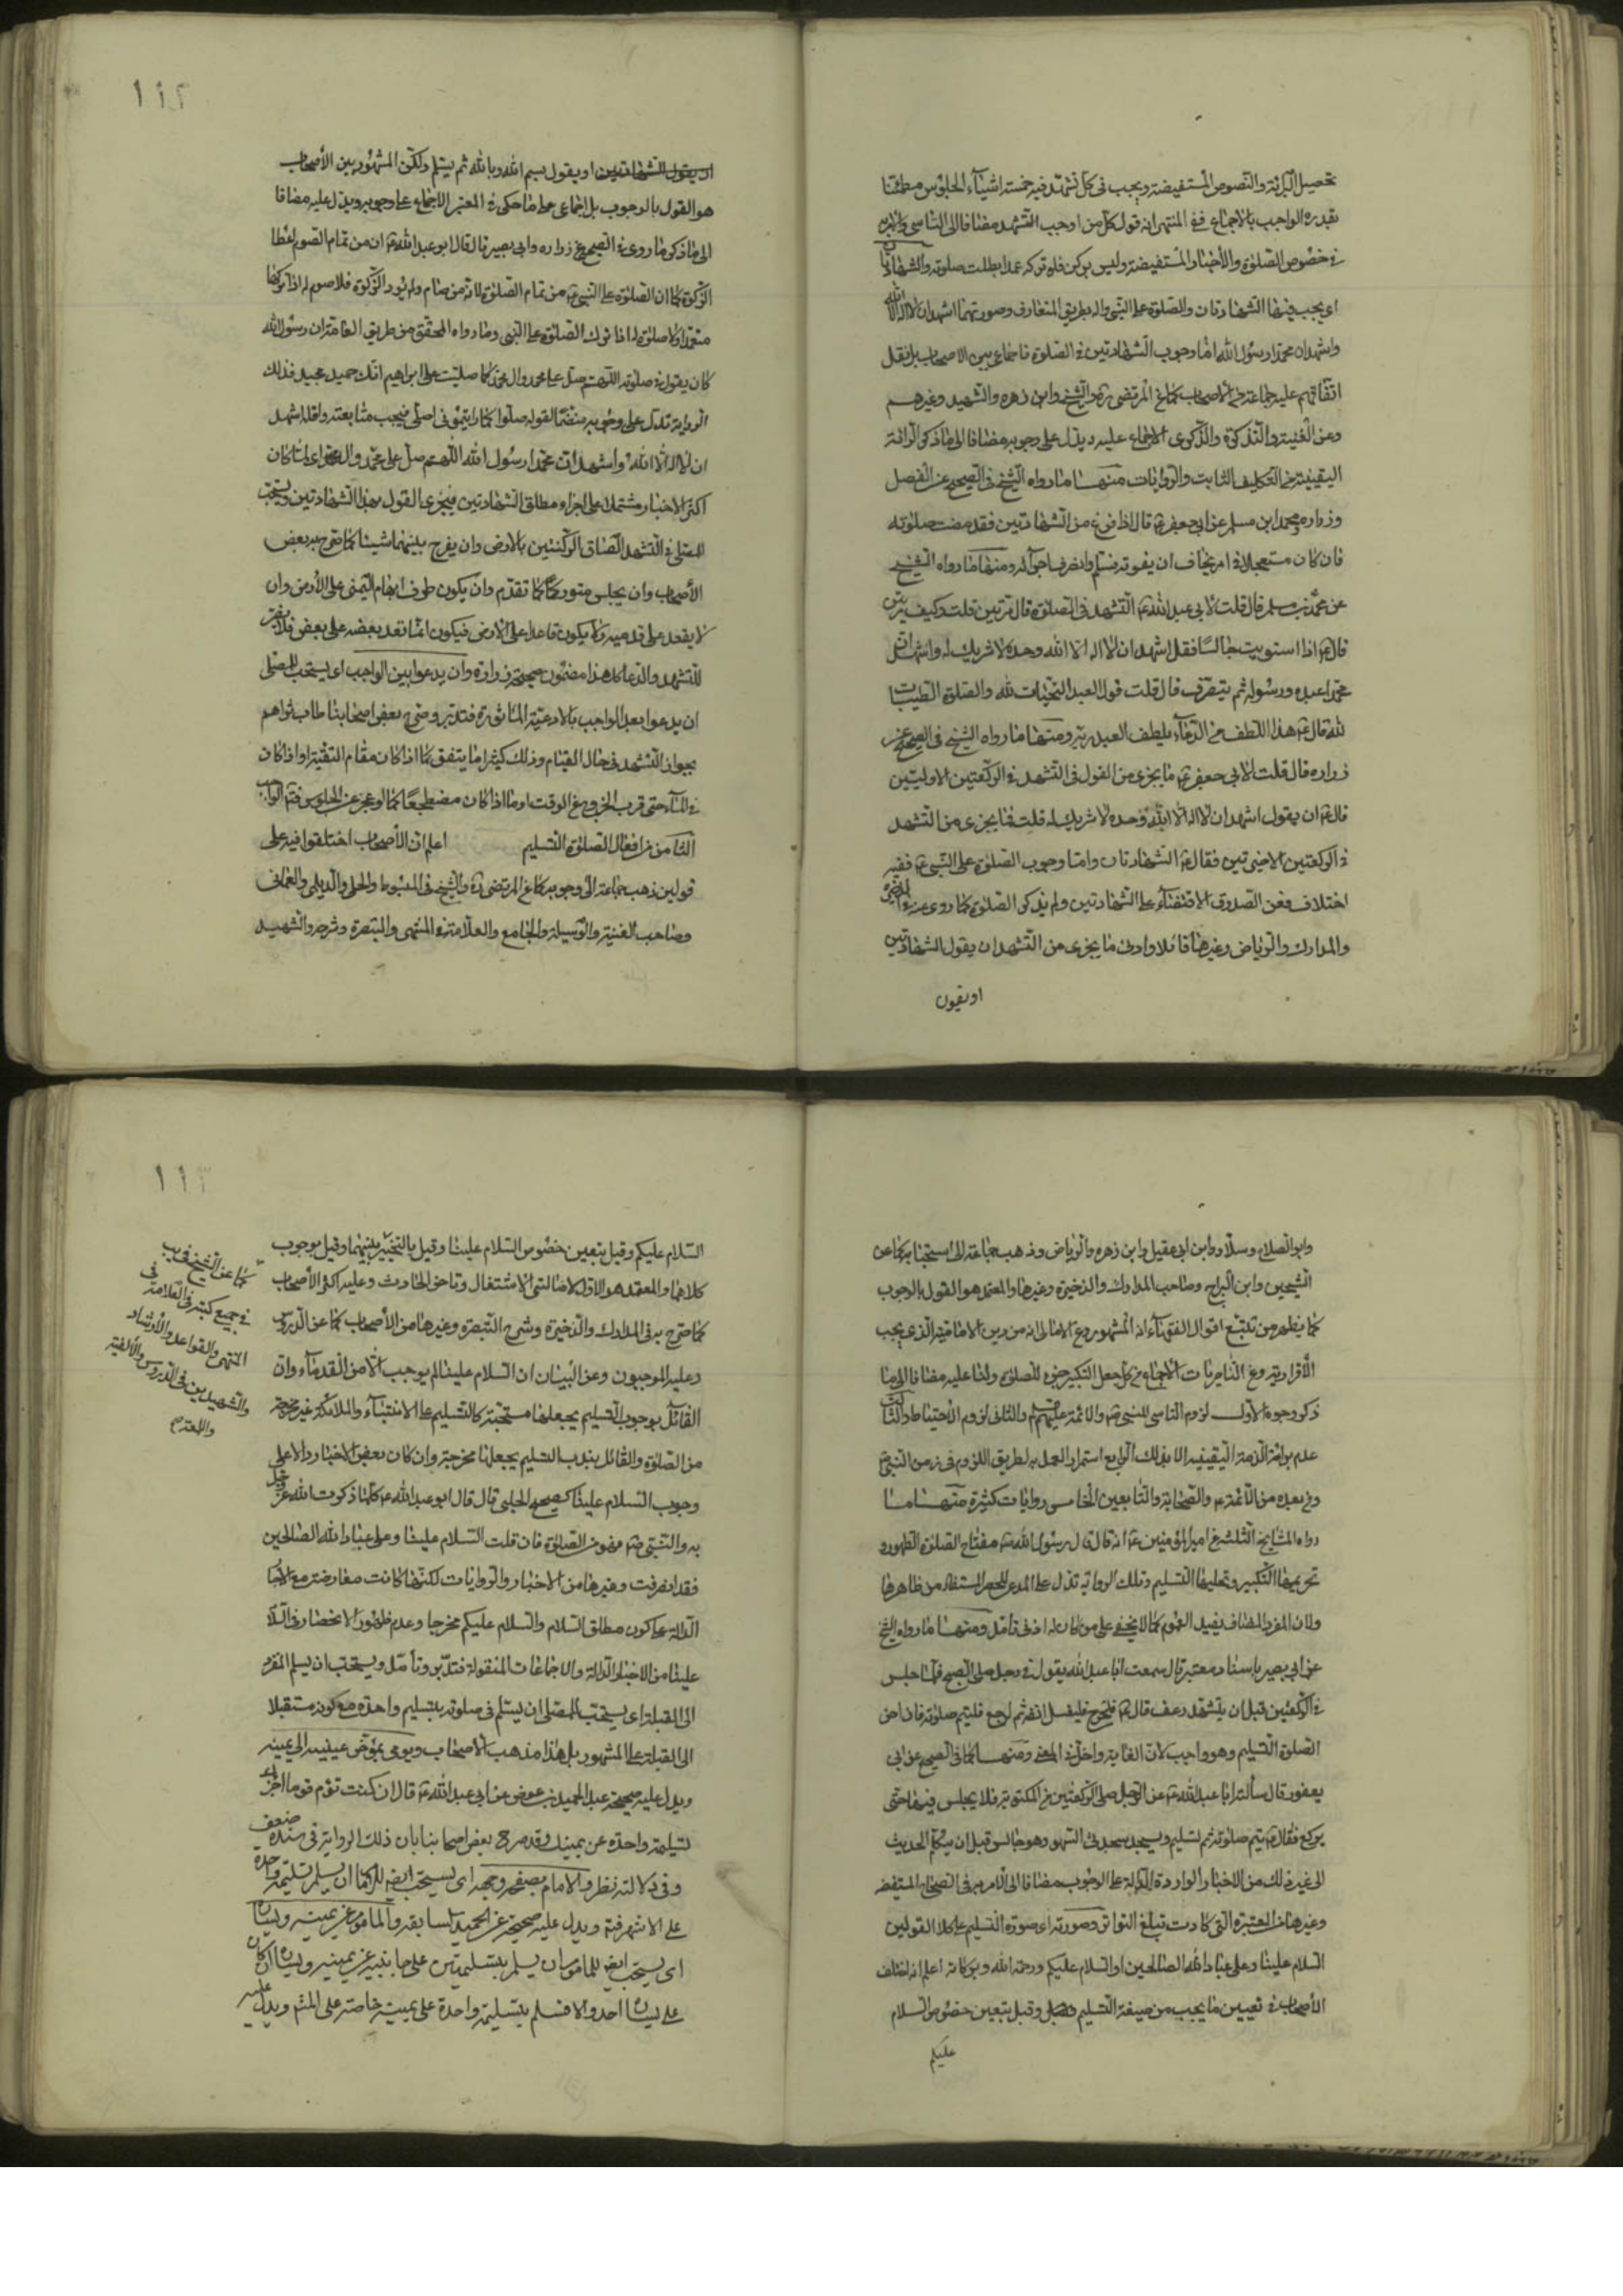 تحصيل البرائة والنصوص المستفيضة ويجب فى كل تشهد فيه خمسة اشياء الجلوس مطمئنا
بقدره الواجب بالاجماع ففى المنتهى انه قول كل من اوجب التشهد مضافا الى التاسى
فى خصوص الصلوة والاخبار المستفيضة وليس بركن فلو تركه عمدا بطلت صلوته والشهادتان
اى يجب فيها الشهادتان والصلوة على النبى واله بطريق المتعارف وصورتهما اشهد ان لا اله الا الله
واشهد ان محمدا رسول الله اما وجوب الشهادتين فى الصلوة فاجماعى بين الاصحاب بل نقل
اتفاقهم عليه جماعة من الاصحاب كما عن المرتضى ره والشيخ وابن زهره والشهيد وغيرهم
وعن الغنية والتذكرة والذكرى الاجماع عليه ويدل على وجوبه مضافا الى ما ذكر البرائة
اليقينية من التكليف الثابت والروايات منها ما رواه الشيخ فى الصحيح عن الفضل
وزراره ومحمد ابن مسلم عن ابى جعفر ع قال اذا فرغ من الشهادتين فقد مضت صلوته
فان كان مستعجلا فى امر يخاف ان يفوته فسلم وانصرف اجزأه ومنها ما رواه الشيخ
عن محمد بن مسلم قال قلت لابى عبد الله ع التشهد فى الصلوة قال مرتين قلت وكيف مرتين
قال ع اذا استويت جالسا فقل اشهد ان لا اله الا الله وحده لا شريك له واشهد ان
محمدا عبده ورسوله ثم ينصرف قال قلت قول العبد التحيات لله والصلوة الطيبات
لله قال ع هذا اللطف من الدعاء يلطف العبد ربه ومنها ما رواه الشيخ فى الصحيح عن
زراره قال قلت لابى جعفر ع ما يجزى من القول فى التشهد فى الركعتين الاوليين
قال ع ان يقول اشهد ان لا اله الا الله وحده لا شريك له قلت فما يجزى من التشهد
فى الركعتين الاخيرتين فقال ع الشهادتان واما وجوب الصلوة على النبى ع ففيه
اختلاف فعن الصدوق الاقتضاء على الشهادتين ولم يذكر الصلوة كما روى عنه
والمدارك والرياض وغيرها قائلا وادنى ما يجزى من التشهد ان يقول الشهادتين
او يقول
١١٢
ان يقول الشهادتين او يقول بسم الله وبالله ثم يسلم ولكن المشهور بين الاصحاب
هو القول بالوجوب بل اجماعى على ما حكى فى المعتبر الاجماع على وجوبه ويدل عليه مضافا
الى ما ذكر ما روى فى الصحيح عن زراره وابى بصير قال قال ابو عبد الله ع ان من تمام الصوم اعطا
الزكوة كما ان الصلوة على النبى ص من تمام الصلوة لانه من صام ولم يؤد الزكوة فلا صوم له اذا تركها
متعمدا ولا صلوة له اذا ترك الصلوة على النبى وما رواه المحقق من طريق العامة ان رسول الله
كان يقول فى صلوته اللهم صل على محمد وال محمد كما صليت على ابراهيم انك حميد مجيد فذلك
الرواية تدل على وجوبه منضما لقوله صلوا كما رايتمونى اصلى فيجب متابعته واقله اشهد
ان لا اله الا الله واشهد ان محمدا رسول الله اللهم صل على محمد وال محمد اى لما كان
اكثر الاخبار مشتملا على اجزاء مطلق الشهادتين فيجزى القول بهذا الشهادتين ويستحب
للمصلى فى التشهد الصاق الركبتين بالارض وان يفرج بينهما شيئا كما صرح به بعض
الاصحاب وان يجلس متوركا كما تقدم وان يكون طرف ابهام اليمنى على الارض وان
لا يقعد على قدميه ولا يكون قاعدا على الارض فيكون انما قعد بعضه على بعض فلا يصبر
للتشهد والدعا كل هذا مضمون صحيحة زراره وان يدعوا بين الواجب اى يستحب للمصلى
ان يدعوا بعد الواجب بالادعية الماثورة فتدبر وصرح بعض اصحابنا طاب ثراهم
بجواز التشهد فى حال القيام وذلك كثيرا ما يتفق كما اذا كان مقام التقية او اذا كان
فى الماء حتى قرب الخروج عن الوقت او ما اذا كان مضطجعا كما لو عجز عن الجلوس فتم الواجب
الثامن من افعال الصلوة التسليم اعلم ان الاصحاب اختلفوا فيه على
قولين ذهب جماعة الى وجوبه كما عن المرتضى ره والشيخ فى المبسوط والحلى والديلمى والعمانى
وصاحب الغنية والوسيلة والجامع والعلامة فى المنتهى والتبصرة وشرحه والشهيد
وابو الصلاح وسلار وابن ابى عقيل وابن زهره والرياض وذهب جماعة الى استحبابه كما عن
الشيخين وابن البراج وصاحب المدارك والذخيرة وغيرها والمعتمد هو القول بالوجوب
كما يظهر من تتبع اقوال الفقهاء انه المشهور وعن الامالى انه من دين الامامية الذى يجب
الاقرار به وعن الناصريات الاجماع من كل جعل التكبير جزء للصلوة ولنا عليه مضافا الى ما
ذكر وجوه الاول لزوم التاسى للنبى ص والائمة عليهم والثانى لزوم الاحتياط والثالث
عدم برائة الذمة اليقينية الا بذلك الرابع استمرار العمل به بطريق اللزوم فى زمن النبى ص
ومن بعده من الائمة ع والصحابة والتابعين الخامس روايات كثيرة منها ما
رواه المشايخ الثلثة عن امير المؤمنين ع انه قال قال رسول الله ص مفتاح الصلوة الطهور و
تحريمها التكبير وتحليلها التسليم وتلك الرواية تدل على المدعى للحصر المستفاد من ظاهرها
ولان المفرد المضاف يفيد العموم كما لا يخفى على من كان له ادنى تامل ومنها ما رواه الشيخ
عن ابى بصير باسناد معتبر قال سمعت ابا عبد الله يقول فى رجل صلى الصبح فلما جلس
فى الركعتين قبل ان يتشهد رعف قال ع فليخرج فليغسل انفه ثم ليرجع فليتم صلوته فان اخر
الصلوة التسليم وهو واجب لان الغاية داخل فى المغيى ومنها كما فى الصحيح عن ابى
يعفور قال سألت ابا عبد الله ع عن الرجل صلى الركعتين من المكتوبة فلا يجلس فيهما حتى
يركع فقال ع يتم صلوته ثم تسليم ويسجد سجدتى السهو وهو جالس قبل ان يتكلم الحديث
الى غير ذلك من الاخبار الواردة الدالة على الوجوب مضافا الى الامر به فى الصحاح المستفيضه
وغيرها من المعتبرة التى كادت تبلغ التواتر وصورته اى صورة التسليم على كلا القولين
السلام علينا وعلى عباد الله الصالحين او السلام عليكم ورحمة الله وبركاته اعلم انه اختلف
الاصحاب فى تعيين ما يجب من صيغة التسليم وقيل بتعين خصوص السلام
عليكم
١١٣
السلام عليكم وقيل بتعين خصوص السلام علينا وقيل بالتخيير بينهما وقيل بوجوب
كلاهما والمعتمد هو الاول لاصالتى الاشتغال وتاخر الحادث وعليه اكثر الاصحاب
كما صرح به فى المدارك والذخيرة وشرح التبصره وغيرها من الاصحاب كما عن الدروس
وعليه الموجبون وعن البيان ان السلام علينا لم يوجب احد من القدماء وان
القائل بوجوب التسليم يجعلها مستحبة كالتسليم على الانبياء والملائكة غير مخرجة
من الصلوة والقائل بندب التسليم يجعلها مخرجة وان كان بعض الاخبار دالا على
وجوب السلام علينا كصحيح الحلبى قال قال ابو عبد الله ع كلما ذكرت الله عز وجل
به والنبى ص فهو من الصلوة فان قلت السلام علينا وعلى عباد الله الصالحين
فقد انصرفت وغيرها من الاخبار والروايات لكنها كانت معارضة مع الاخبار
الدالة على كون مطلق السلام والسلام عليكم مخرجا وعدم ظهور الانحصار فى السلام
علينا من الاخبار الدالة والاجماعات المنقولة فتدبر وتأمل ويستحب ان يسلم المفرد
الى القبلة اى يستحب للمصلى ان يسلم فى صلوته بتسليم واحدة مع كونه مستقبلا
الى القبلة على المشهور بل هذا مذهب الاصحاب ويومى بمؤخر عينيه الى يمينه
ويدل عليه صحيحة عبد الحميد بن عوض عن ابى عبد الله ع قال ان كنت تؤم قوما اجزأك
تسليمة واحدة عن يمينك وقد صرح بعض اصحابنا بان ذلك الرواية فى سنده ضعف
وفى دلالته نظر والامام بصفحة وجهه اى يستحب ايضا للامام ان يسلم تسليمة واحدة
على الاشهر فيه ويدل عليه صحيحة عبد الحميد السابقه والماموم عن يمينه ويساره
اى يستحب ايضا للماموم ان يسلم بتسليمتين على جانبيه عن يمينه ويساره ان كان
على يساره احد والا فسلم بتسليمة واحدة على يمينه خاصة على المشهور ويدل عليه
كما عن الشيخ فى يب
فى جميع كتبه والعلامة فى
المنتهى والقواعد والارشاد
والشهيدين فى الدروس والالفية
واللمعة